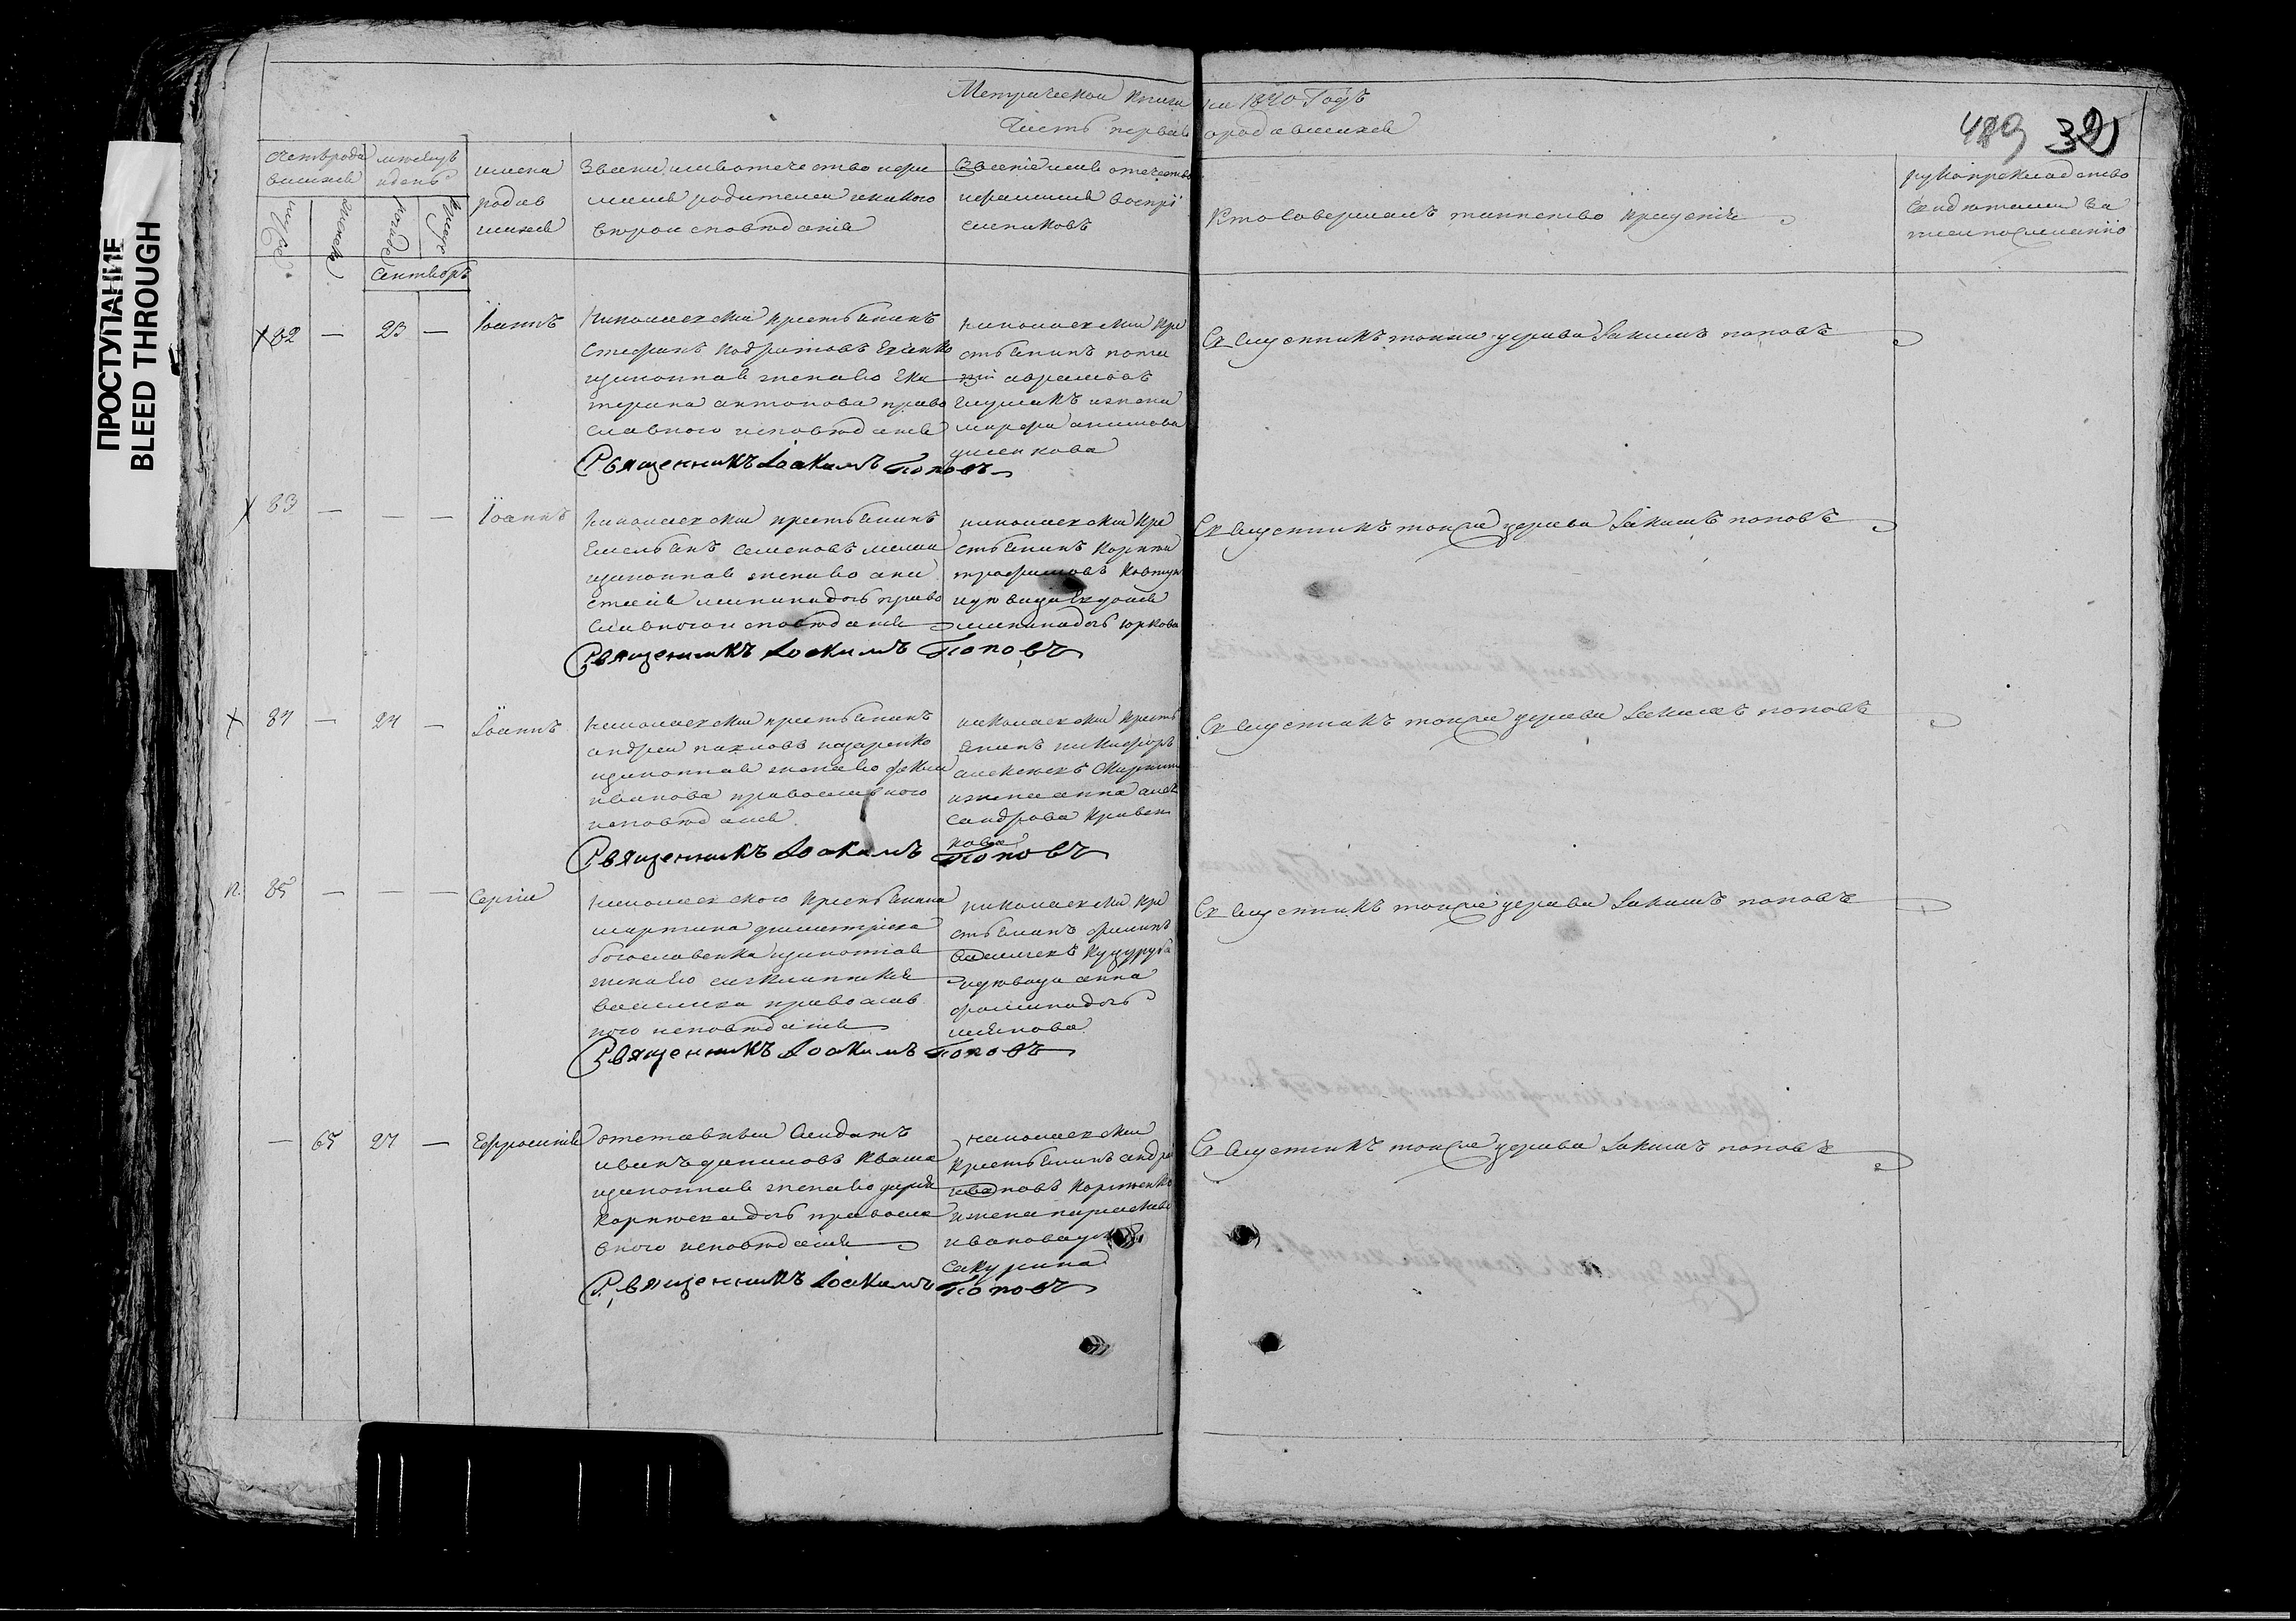 ПРОСТУПАНИЕ
BLEED THROUGH
Метрической книги на 1840 Годъ
Часть первая о родавшихся
489 32
счетъ рода
вшихся
мужеск
женска
месяцъ
и день
рожде
креще
имена
родив
шихся
Звание имя отечество и фа
милия родителей и какого
вероисповѣдания
Звание имя отечество
и фамилия воспрі
емниковъ
Кто совершалъ таинство крещенія
рукоприкладство
свидетелей за
писи по желанію
Сентябрь
82 — 23 —
Іоаннъ
Николаевский крестьянинъ
Стефанъ Кодратовъ
и законная жена его Ека
терина антонова право
славного исповѣдания
Священникъ Іоакимъ Поповъ
николаевский кре
стьянинъ
аврамовъ
и жена
марфа акимова
Священникъ тоя же церкви Іакимъ поповъ
83 — — —
Іоаннъ
Николаевский крестьянинъ
Емельянъ семеновъ
и законная жена его ана
стасія минина дочь право
славного исповѣдания
Священникъ Іоакимъ Поповъ
николаевский кре
стьянинъ
трофимовъ Ковтун
и девица Евдокія
минина дочь юркова
Священникъ тоя же церкви Іакимъ поповъ
84 — 24 —
Іоаннъ
Николаевский крестьянинъ
андрей павловъ назаренко
и законная жена его фекла
иванова православного
исповѣдания
Священникъ Іоакимъ Поповъ
николаевский кресть
янинъ никифоръ
алексеевъ
и жена анна алек
сандрова кривен
кова
Священникъ тоя же церкви Іакимъ поповъ
п. 85 — — —
Сергій
Николаевского крестьянина
мартина димитріева
богославенка и законная
жена его
васильева православ
ного исповѣдания
Священникъ Іоакимъ Поповъ
николаевский кре
стьянинъ филипъ
Кущуруба
и девица анна
фомина дочь
Священникъ тоя же церкви Іакимъ поповъ
— 65 27 —
Ефросинія
отставный Солдатъ
иванъ даниловъ Кваша
и законная жена его дарія
корнеева дочь правосла
вного исповѣдания
Священникъ Іоакимъ Поповъ
николаевский
крестьянинъ андрей
ивановъ Корниенко
и жена параскева
иванова
Священникъ тоя же церкви Іакимъ поповъ